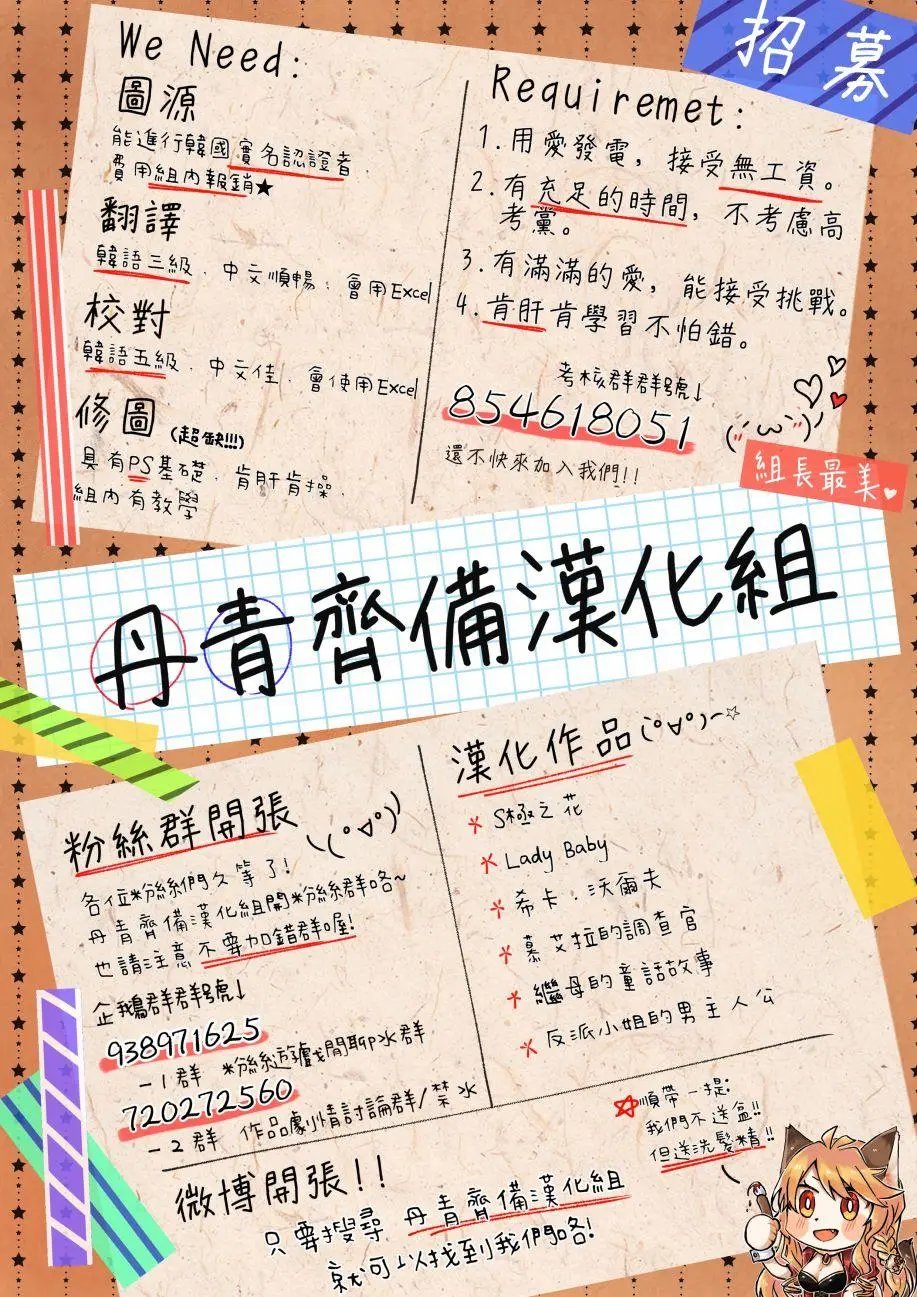 招募
We Need:
圖源
能進行韓國實名認證者.
費用組內報銷★
翻譯
韓語三級.中文順暢.會用Excel
校對
韓語五級.中文佳.會使用Excel
修圖(超缺!!!)
具有PS基礎.肯肝肯操.
組內有教學
Requiremet:
1.用愛發電，接受無工資。
2.有充足的時間，不考慮高
考黨。
3.有滿滿的愛，能接受挑戰。
4.肯肝肯學習不怕錯。
考核群群號↓
854618051
還不快來加入我們!!
(´ω`)
組長最美♥
丹青齊備漢化組
粉絲群開張
\(°∀°)/
各位粉絲們久等了!
丹青齊備漢化組開粉絲群咯~
也請注意不要加錯群喔!
企鵝群群號↓
938971625
-1群 粉絲遊戲閒聊吹水群
720272560
-2群 作品劇情討論群/禁水
漢化作品(°∀°)~☆
*S極之花
*Lady Baby
*希卡.沃爾夫
*慕艾拉的調查官
*繼母的童話故事
*反派小姐的男主人公
☆順帶一提:
我們不送盒!!
但送洗髮精!!
微博開張!!
只要搜尋 丹青齊備漢化組
就可以找到我們咯!